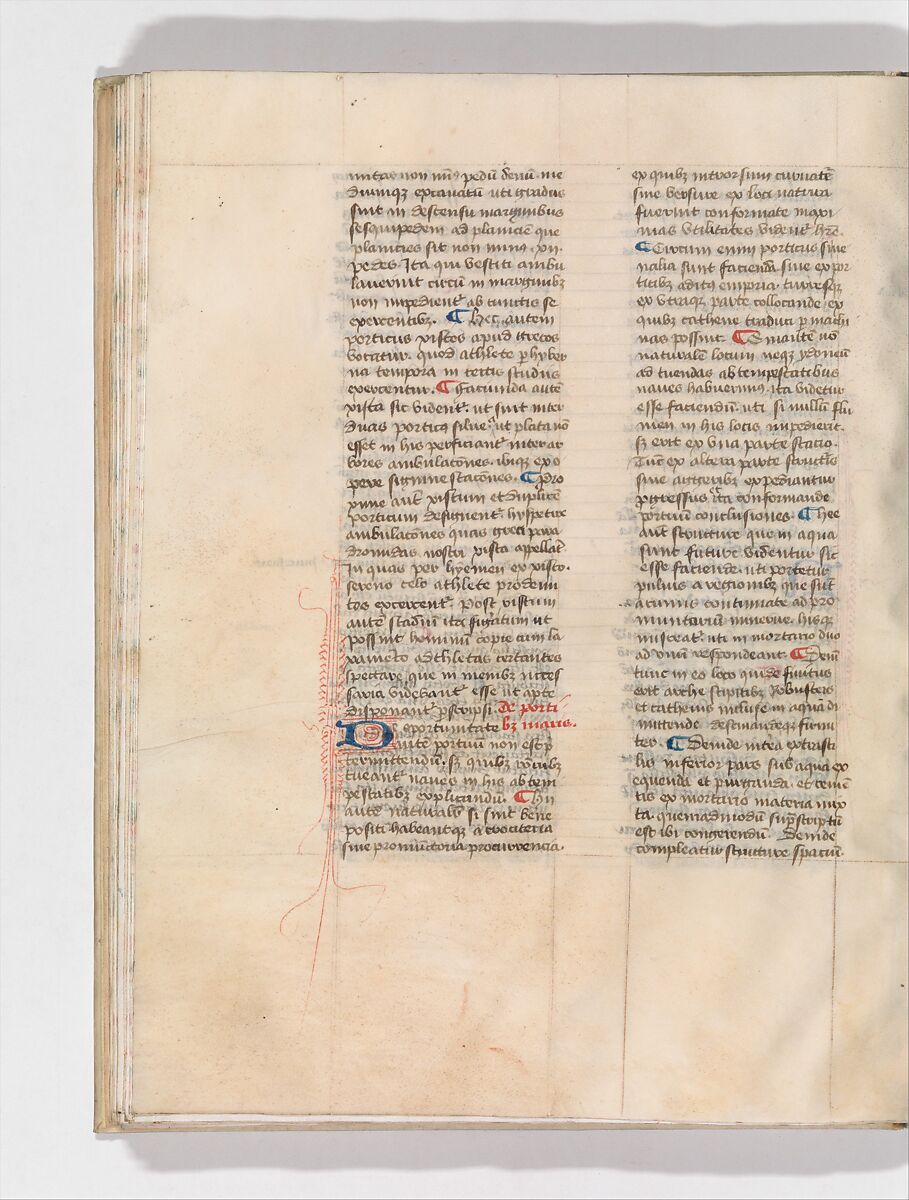 mitas non min9 pedū denū me
diumqꝫ excauatū uti gradus
sint in descensu marginibus
sesquipedem ad planiciē que
planicies sit non minus .xii.
pedes Ita qui vestiti ambu
lauerint circū in marginibꝫ
non impedient᷑ ab cunctis se
exercentibꝫ. ¶ Hec autem
porticus xistos apud grecos
vocatur. quod athlete ꝑ hyber
na tempora in tectis studiis
exercentur. ¶ Facunda autē
xista sic vident᷑. ut sint inter
duas portic9 silue. ut platano
esset in his perficiant᷑ inter ar
bores ambulacōnes. ibiqꝫ ex o
pere signine stacōnes. ¶ Pro
xime aut̄ xistum et duplicē
porticum designent᷑ hyspetre
ambulacōnes quas greci pera
dromidas nostri xista appellāt
in quas per hyemen ex xisto.
sereno celo athlete prodeun
tes exercent᷑. Post xistum
autē stadiū ita figuratum ut
possint hominū copie cum la
xamēto adthletas certantes
spectare. que in menibꝫ neces
saria videbant᷑ esse ut apte
disponant᷑ ꝑscripsi. De porti
bꝫ in aquis.
De oportunitate
aute portuū non est p̄
termittendū. sꝫ quibꝫ rōibꝫ
tueant᷑ naues in his ab tem
pestatibꝫ explicandū. ¶ Hii
autē naturalit᷑ si sint bene
positi habeantqꝫ acrocteria
siue promūctoria procurrencia.
ex quibꝫ introrsum curuatē
siue versure ex loci natura
fuerint conformate maxi
mas vtilitates vident᷑ hr̄e.
¶ Circum enim porticus siue
nalia sunt faciend̄a. siue ex por
ticibꝫ adit9 emporia. turresqꝫ
ex vtraqꝫ parte collocande. ex
quibꝫ cathene traduci p̄ machi
nas possint. ¶ Si autē nō
naturalē locum neqꝫ ydoneū
ad tuendas ab tempestatibus
naues habuerim9. ita videtur
esse faciendū. uti si nullū flu
men in his locis impedierit.
sꝫ erit ex vna parte stacio.
Tūc ex altera parte structīs
siue aggeribꝫ expediantur
ꝓgressus. ita conformande
portuū conclusiones. ¶ Hee
aut̄ structure que in aqua
sunt future videntur sic
esse faciende. uti portetur
puluis a regionibꝫ que sūt
a cumis continuate ad pro
muntariū minerue. hisqꝫ
misceat᷑. uti in mortario duo
ad vnū respondeant. ¶ Deīn
tunc in eo loco qui definitus
erit arche stipitibꝫ robusteis
et cathenis incluse in aquā di
mittende destinandeqꝫ firmi
ter. ¶ Deinde intea extrasti
lis inferior pars sub aqua ex
equenda et purganda. et cemē
tis ex mortario materia mix
ta. quemadmodū supͣscriptū
est ibi congerendū. Deinde
compleatur structure spaciū.